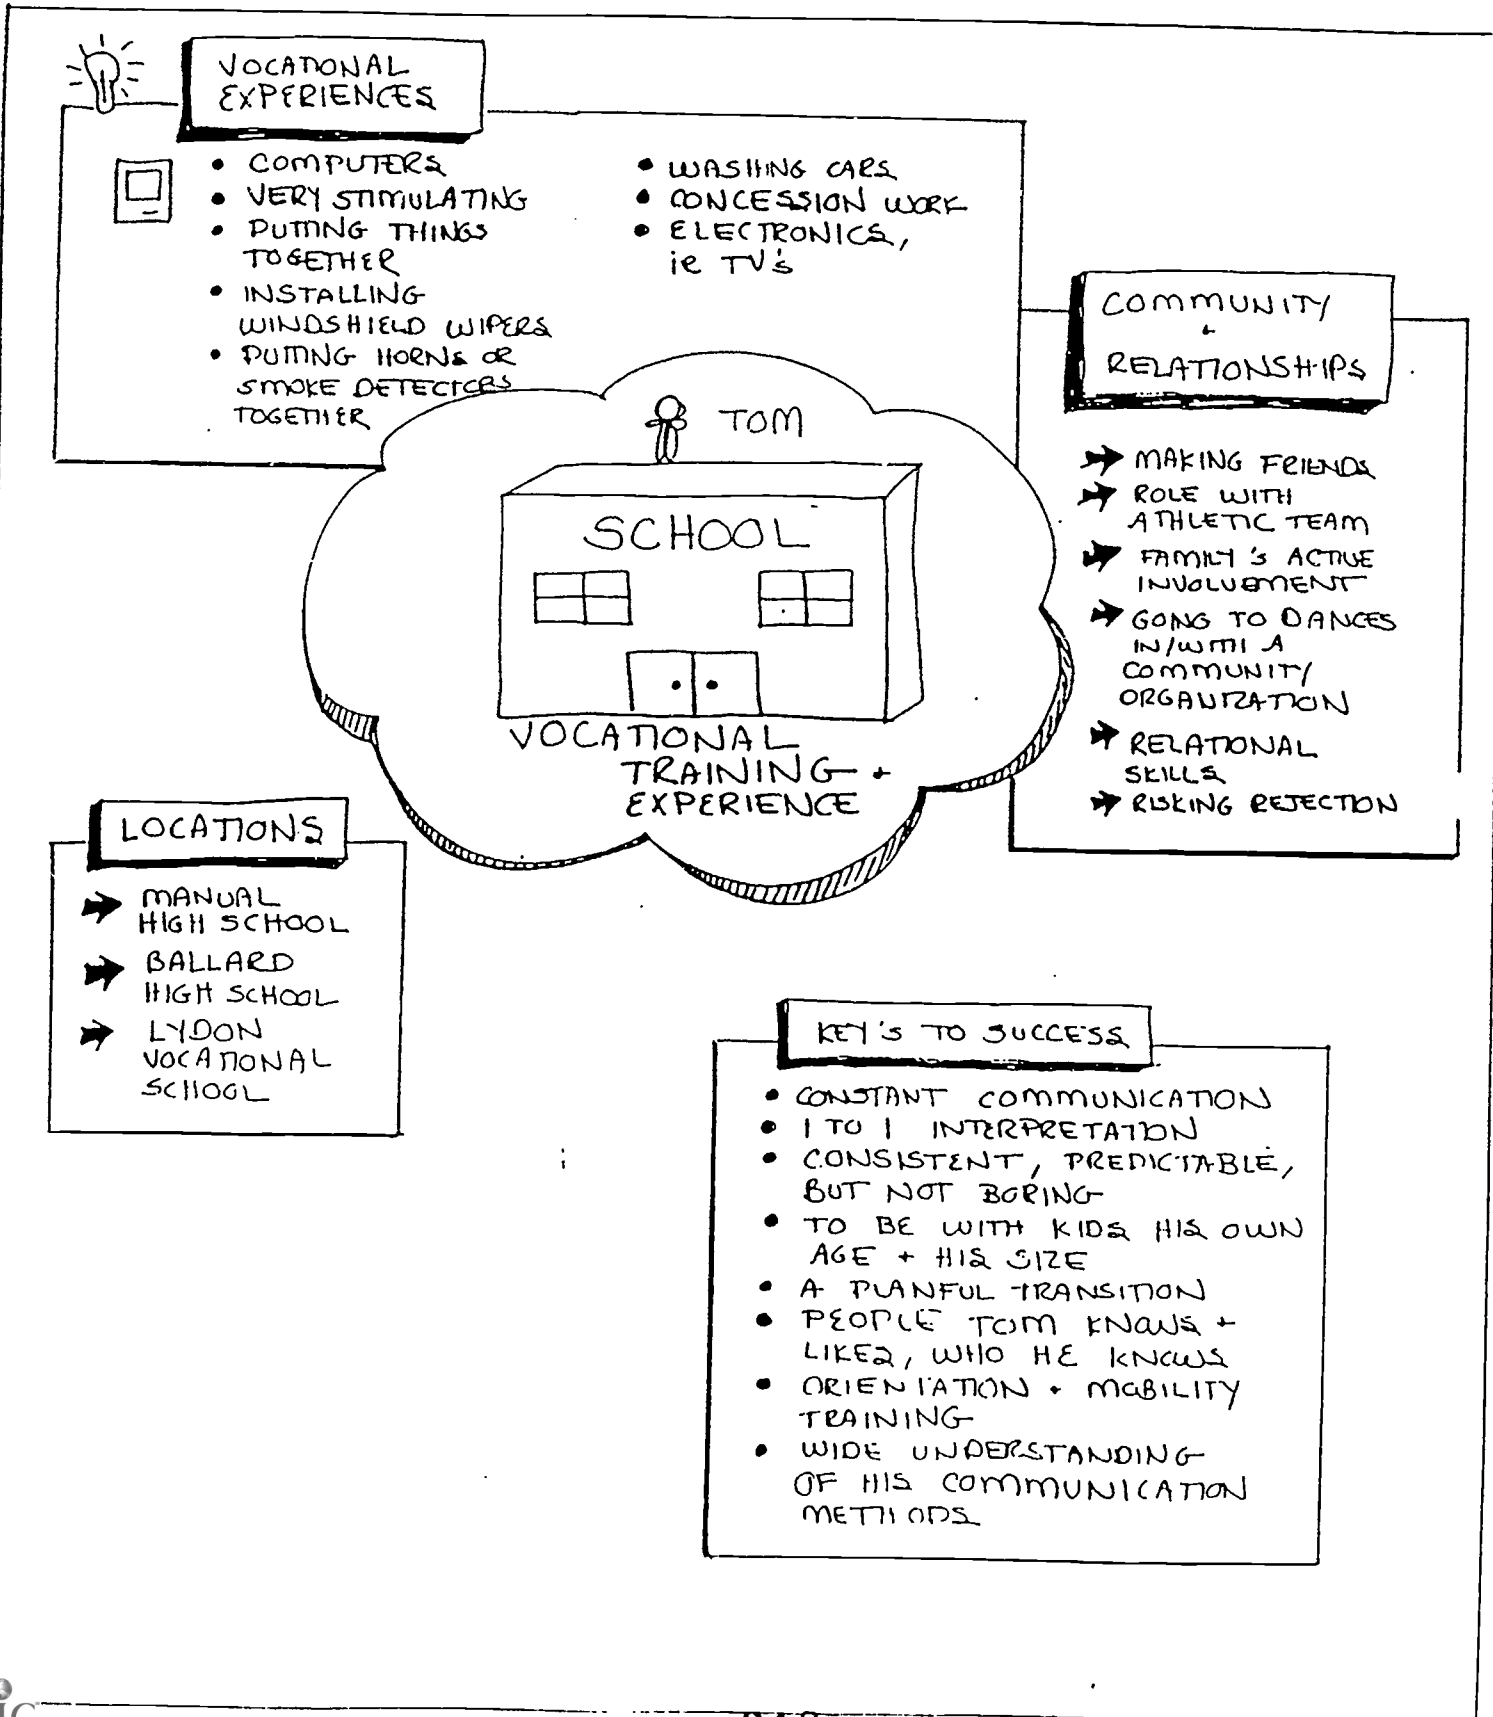 VOCATIONAL
EXPERIENCES
• COMPUTERS
• VERY STIMULATING
• PUTTING THINGS
TOGETHER
• INSTALLING
WINDSHIELD WIPERS
• PUTTING HORNS OR
SMOKE DETECTORS
TOGETHER
• WASHING CARS
• CONCESSION WORK
• ELECTRONICS,
ie TV's
COMMUNITY
+
RELATIONSHIPS
MAKING FRIENDS
ROLE WITH
ATHLETIC TEAM
FAMILY'S ACTIVE
INVOLVEMENT
GOING TO DANCES
IN/WITH A
COMMUNITY
ORGANIZATION
RELATIONAL
SKILLS
RISKING REJECTION
TOM
SCHOOL
VOCATIONAL
TRAINING +
EXPERIENCE
LOCATIONS
MANUAL
HIGH SCHOOL
BALLARD
HIGH SCHOOL
LYDON
VOCATIONAL
SCHOOL
KEY'S TO SUCCESS
• CONSTANT COMMUNICATION
• 1 TO 1 INTERPRETATION
• CONSISTENT, PREDICTABLE,
BUT NOT BORING
• TO BE WITH KIDS HIS OWN
AGE + HIS SIZE
• A PLANFUL TRANSITION
• PEOPLE TOM KNOWS +
LIKES, WHO HE KNOWS
• ORIENTATION + MOBILITY
TRAINING
• WIDE UNDERSTANDING
OF HIS COMMUNICATION
METHODS